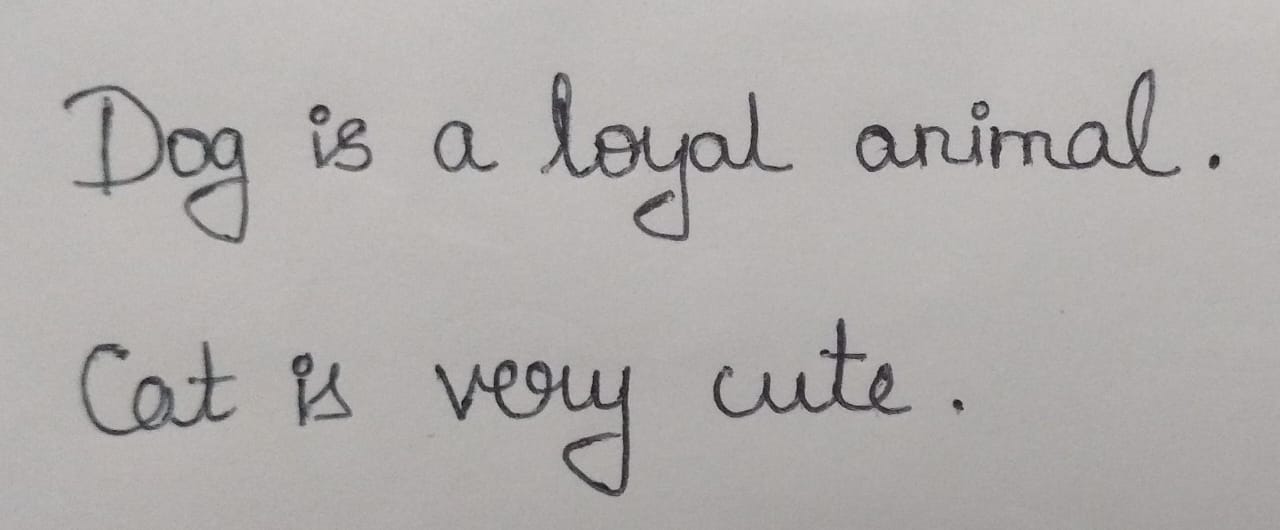 Dog is a loyal animal.
Cat is very cute.